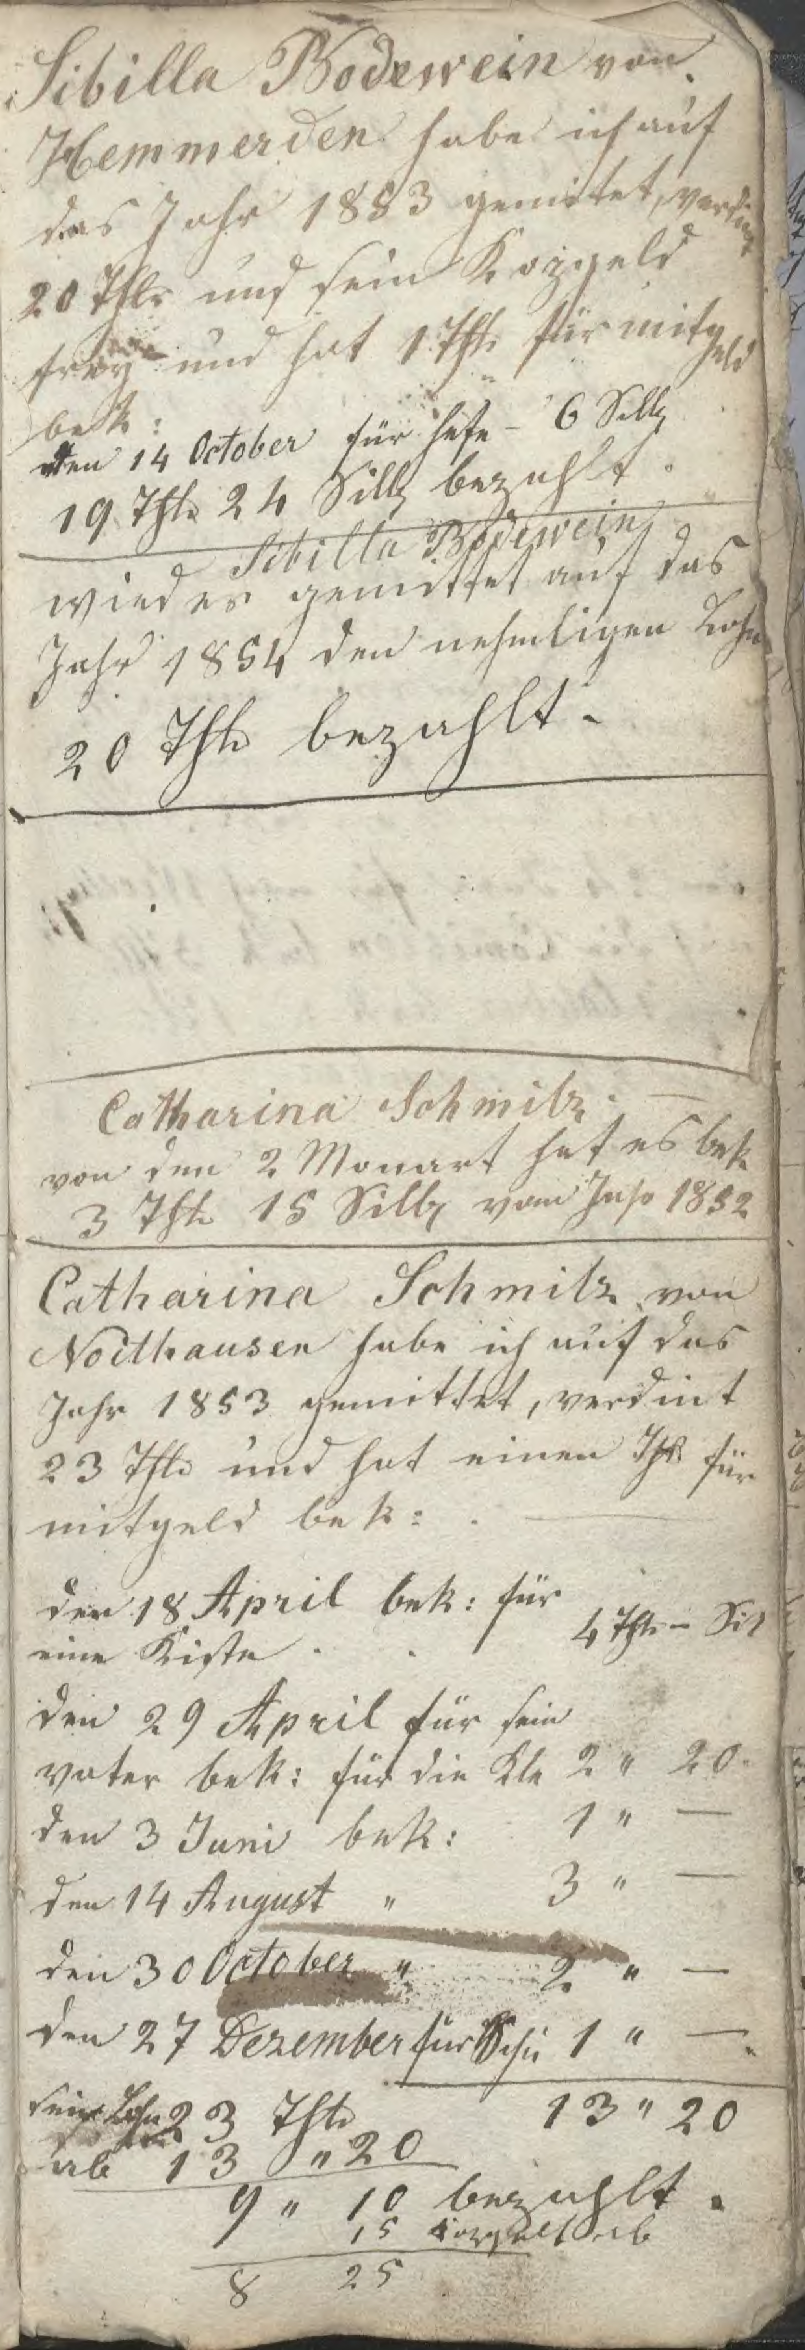 Sibilla Bodewein von
Hemmerden habe ich auf
das Jahr 1853 gemitet, verdint
20 Thlr und sein Kozgeld
frey und hat 1 Thlr für mitgeld
bek:
den 14 October für hefe - 6 Sillg
19 Thlr 24 Sillg bezahlt.
Sibilla Bodewein
wieder gemittet auf das
Jahr 1854 den nehmligen Lohn
20 Thlr bezahlt.
Catharina Schmitz. —
von den 2 Monart hat es bek
3 Thlr 15 Sillg vom Jahr 1852
Catharina Schmitz von
Noithausen habe ich auf das
Jahr 1853 gemittet, verdint
23 Thlr und hat einen Thlr für
mitgeld bek: . —
den 18 April bek: für
eine Kiste . . 4 Thlr - Sil
den 29 April für sein
vater bek: für die 2 " 20
den 3 Juni bek: 1 " —
den 14 August " 3 " —
den 30 October " 2 " —
den 27 Dezember für 1 " —
13 " 20
sein Lohn 23 Thlr
ab 13 " 20
9 " 10 bezahlt.
15 Kozgelt ab
8 25